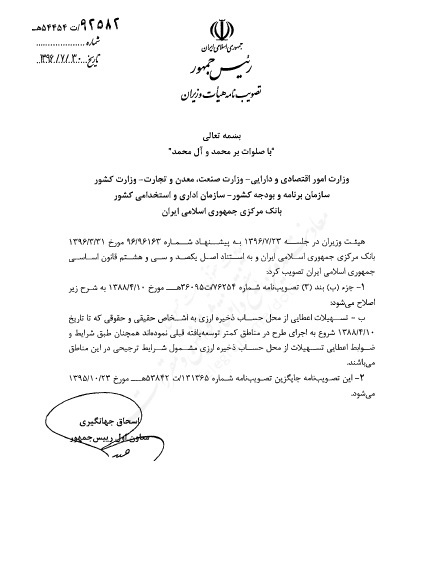 ۹۲۵۸۲/ت۵۴۴۵۴هـ
شماره
۱۳۹۶/۷/۳۰
تاریخ
جمهوری اسلامی ایران
رئیس جمهور
تصویب نامه هیأت وزیران
بسمه تعالی
"با صلوات بر محمد و آل محمد"
وزارت امور اقتصادی و دارایی- وزارت صنعت، معدن و تجارت- وزارت کشور
سازمان برنامه و بودجه کشور- سازمان اداری و استخدامی کشور
بانک مرکزی جمهوری اسلامی ایران
هیئت وزیران در جلسه ۱۳۹۶/۷/۲۳ به پیشنهاد شماره ۹۶/۹۶۱۶۳ مورخ ۱۳۹۶/۳/۳۱
بانک مرکزی جمهوری اسلامی ایران و به استناد اصل یکصد و سی و هشتم قانون اساسی
جمهوری اسلامی ایران تصویب کرد:
۱- جزء (ب) بند (۳) تصویب‌نامه شماره ۷۶۲۵۴/ت۳۶۰۹۵هـ مورخ ۱۳۸۸/۴/۱۰ به شرح زیر
اصلاح می‌شود:
ب - تسهیلات اعطایی از محل حساب ذخیره ارزی به اشخاص حقیقی و حقوقی که تا تاریخ
۱۳۸۸/۴/۱۰ شروع به اجرای طرح در مناطق کمتر توسعه‌یافته قبلی نموده‌اند همچنان طبق شرایط و
ضوابط اعطایی تسهیلات از محل حساب ذخیره ارزی مشمول شرایط ترجیحی در این مناطق
می‌باشند.
۲- این تصویب‌نامه جایگزین تصویب‌نامه شماره ۱۳۱۳۶۵/ت۵۳۸۴۲هـ مورخ ۱۳۹۵/۱۰/۲۳
می‌شود.
اسحاق جهانگیری
معاون اول رییس‌جمهور